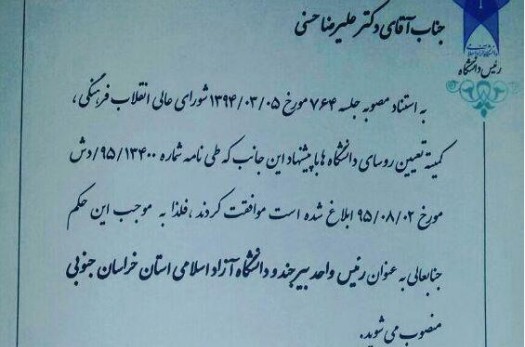 جناب آقای دکتر علیرضا حسنی
رئیس دانشگاه
به استناد مصوبه جلسه ۷۶۴ مورخ ۱۳۹۴/۰۳/۰۵ شورای عالی انقلاب فرهنگی،
کمیته تعیین روسای دانشگاه ها با پیشنهاد این جانب که طی نامه شماره ۹۵/۱۳۴۰۰/دش
مورخ ۹۵/۰۸/۰۲ ابلاغ شده است موافقت کردند، فلذا به موجب این حکم
جنابعالی به عنوان رئیس واحد بیرجند و دانشگاه آزاد اسلامی استان خراسان جنوبی
منصوب می شوید.